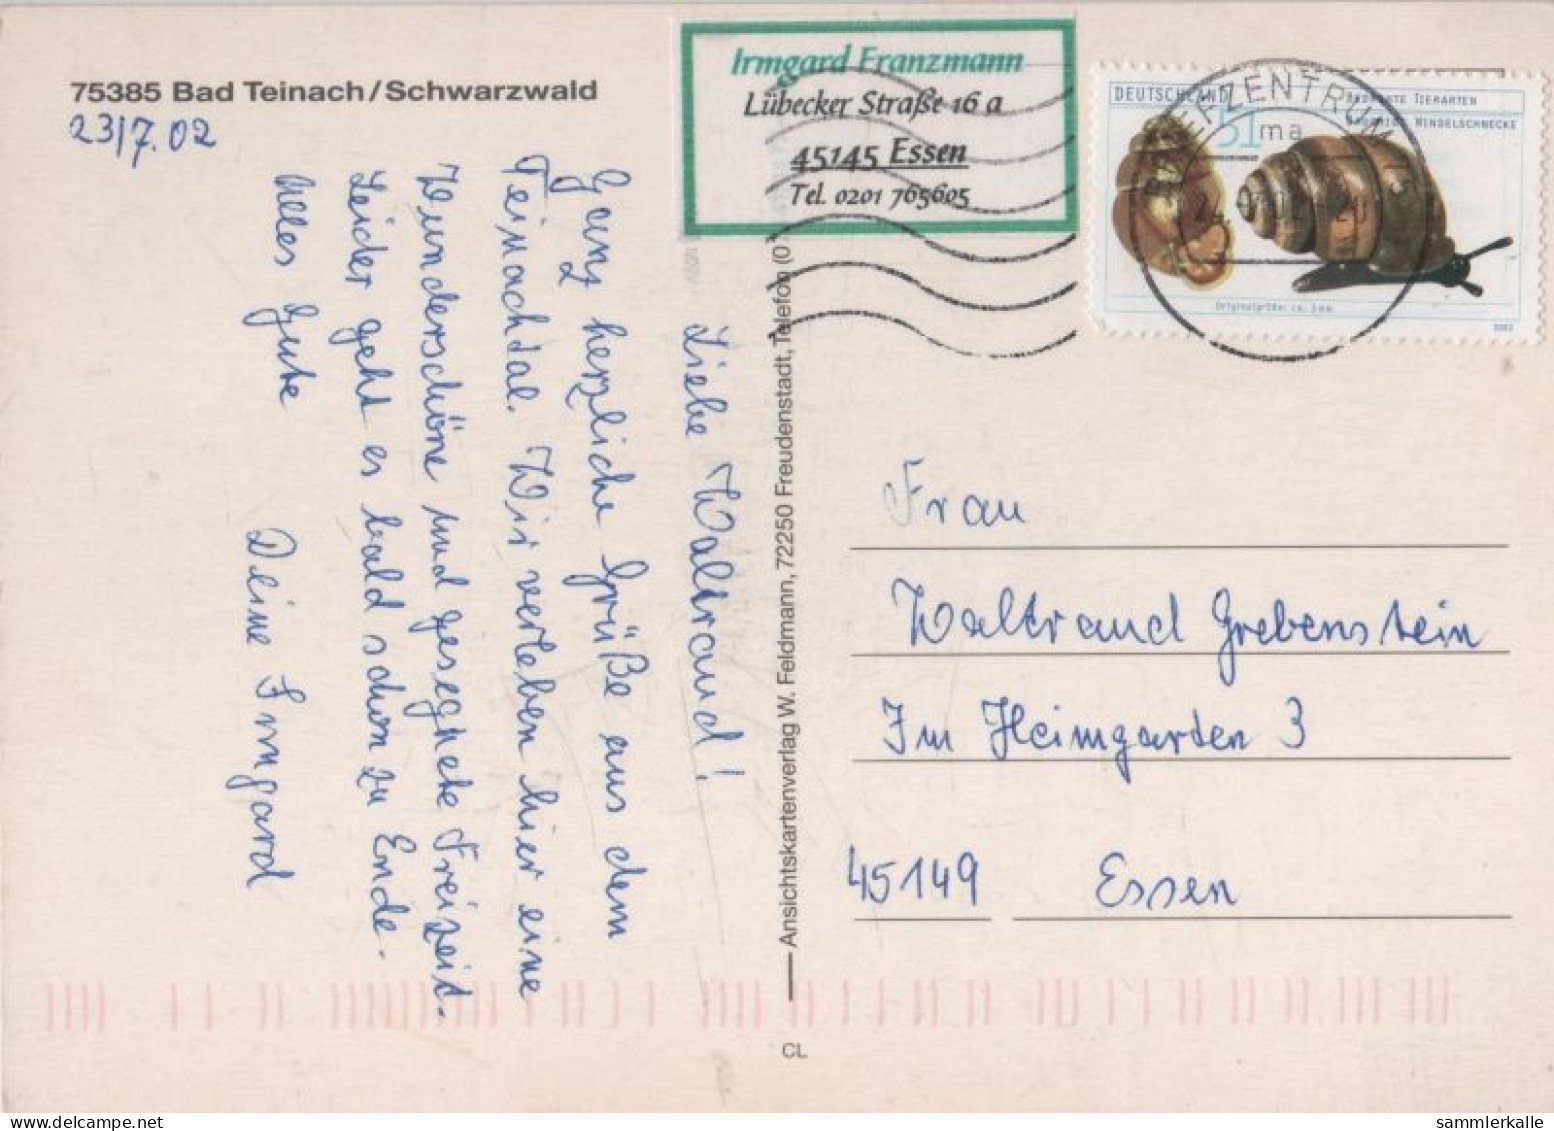 75385 Bad Teinach/Schwarzwald
23/7.02
Irmgard Franzmann
Lübecker Straße 16 a
45145 Essen
Tel. 0201 765605
DEUTSCHLAND
TIERARTEN
WINDELSCHNECKE
51
Originalgröße: ca. 3mm
2002
BRIEFZENTRUM
Liebe Waltraud!
Ganz herzliche Grüße aus dem
Teinachtal. Wir verleben hier eine
Wunderschöne und gesegnete Freizeit.
Leider geht es bald schon zu Ende.
Alles Gute Deine Irmgard
Ansichtskartenverlag W. Feldmann, 72250 Freudenstadt, Telefon (0
CL
Frau
Waltraud Grebenstein
Im Heimgarten 3
45149 Essen
sammlerkalle